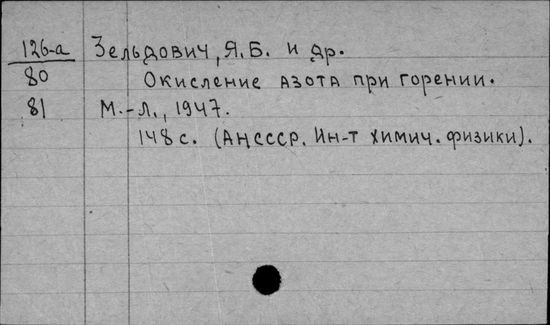 126-а Зельдович, Я.Б. и др.
80 Окисление азота при горении.
81 М.-Л., 1947.
148 с. (АН СССР. Ин-т химич. физики).